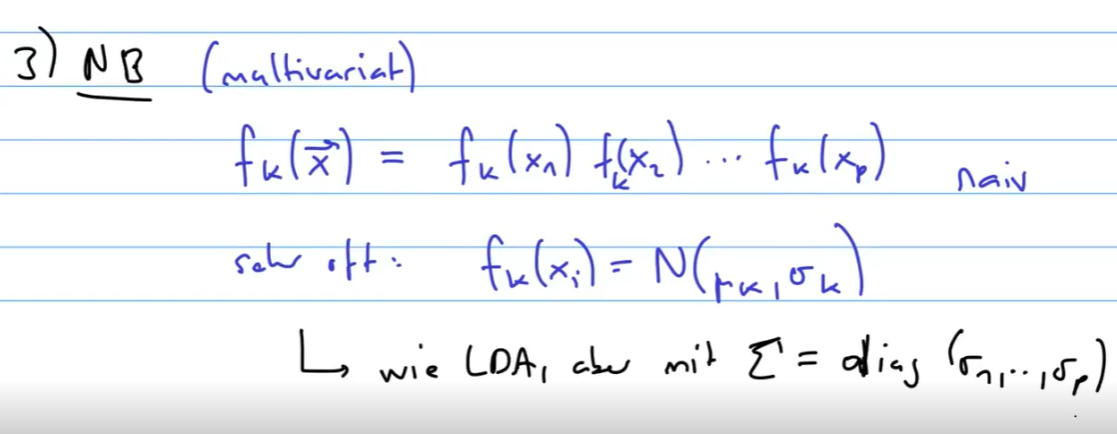 3) NB (multivariat)
fₖ(x⃗) = fₖ(x₁) fₖ(x₂) ... fₖ(xₚ) naiv
sehr oft: fₖ(xᵢ) = N(μₖ, σₖ)
↳ wie LDA, aber mit Σ = diag (σ₁, .., σₚ)